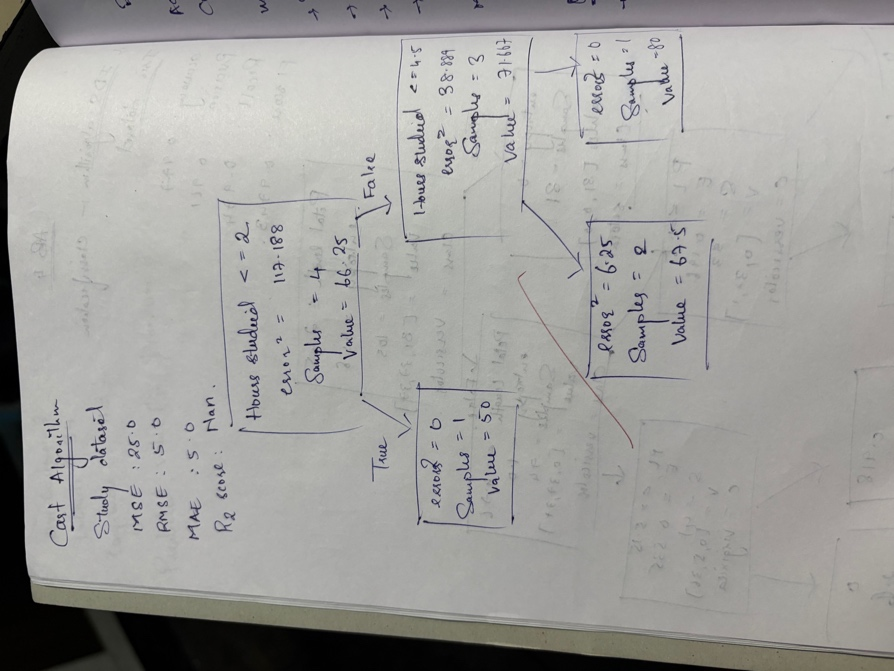 Cast Algorithm
Study dataset
MSE : 25.0
RMSE : 5.0
MAE : 5.0
R2 score : Nan.
Hours studied <= 2.
error² = 117.188
Samples = 4
Value = 66.25
True
False
error² = 0
Samples = 1
Value = 50
Hours studied <= 4.5
error² = 38.889
Samples = 3
Value = 71.667
error² = 6.25
Samples = 2
Value = 67.5
error² = 0
Samples = 1
Value = 80